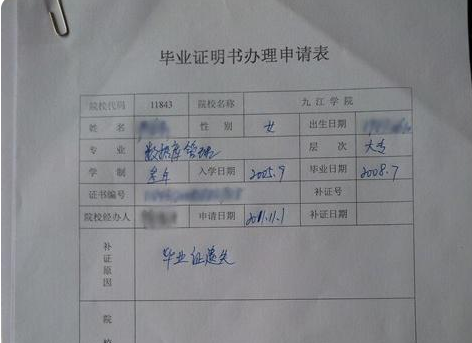 毕业证明书办理申请表
院校代码 11843 院校名称 九江学院
姓 名 性 别 女 出生日期
专 业 数据库管理 层 次 大专
学 制 叁年 入学日期 2005.9 毕业日期 2008.7
证书编号 补证号
院校经办人 申请日期 2011.11.1 补证日期
补证原因 毕业证遗失
院